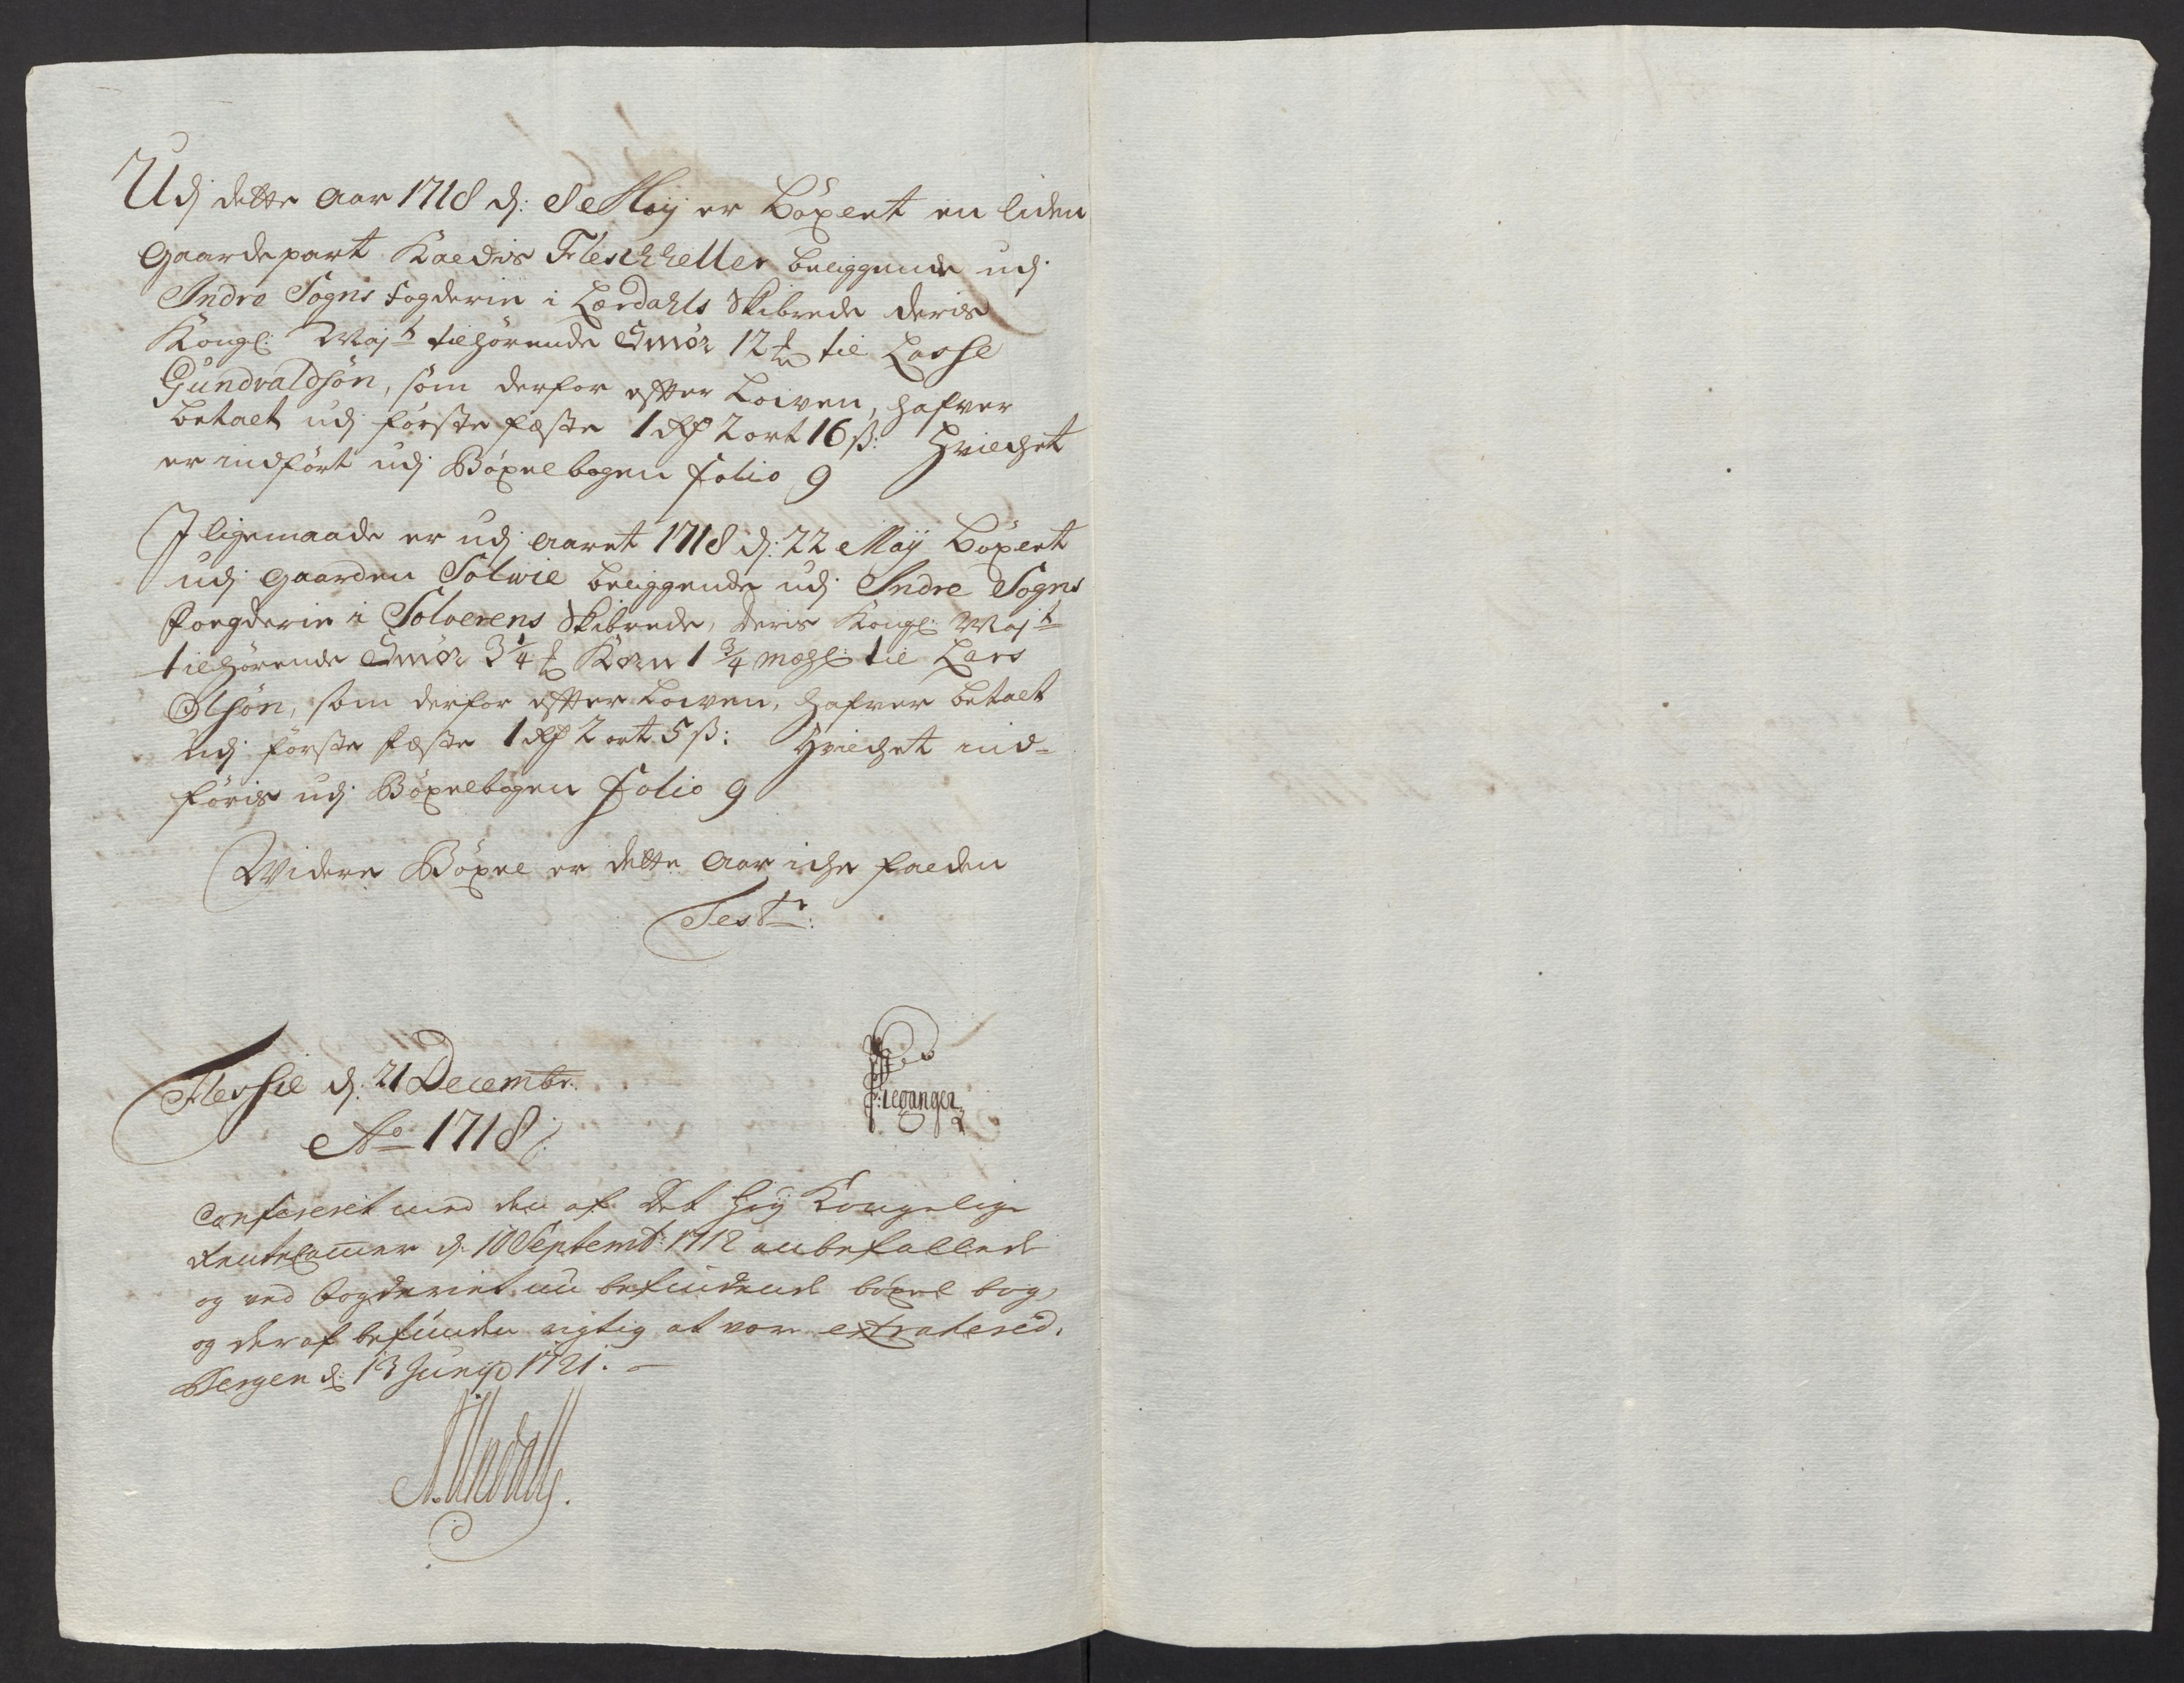 Udj dette Aar 1718 d: 8 Maij er Böxlet en liden
Gaardepart Kaldis Fleschheller beliggende udj
Indre Sogns Fogderie i Lærdahls Skibrede deris
Kongl: Maj:t tilhørende Smör 12 til Lasse
Gundvaldsön, som derfor efter Loven, hafver
betalt udj förste fæste 1 Rdr 2 ort 16 ß: Hvilchet
er indfört udj Böxelbogen folio 9
J ligemaade er udj Aaret 1718 d: 22 Maij Böxlet
udj Gaarden Solwie beliggende udj Indre Sogns
Fougderie i Solverens Skibrede, deris Kongl: Maj:t
tilhörende Smör 3 1/4 Korn 1 3/4 mæhl: til Lars
Olsön, som derfor efter Loven, hafver betalt
udj förste fæste 1 Rdr 2 ort 5 ß: Hvilchet ind-
föris udj Böxelbogen Folio 9
Widere Böxel er dette Aar iche falden
Test:
Flesche d: 21 Decembr:
Ao 1718
Confereret med den af Det höy Kongelige
Rentecammer d: 10 Septemb: 1712 anbefallede
og ved Fogderiet nu befindende böxel bog,
og deraf befunden rigtig at vere extraherед.
Bergen d: 13 Junij 1721.